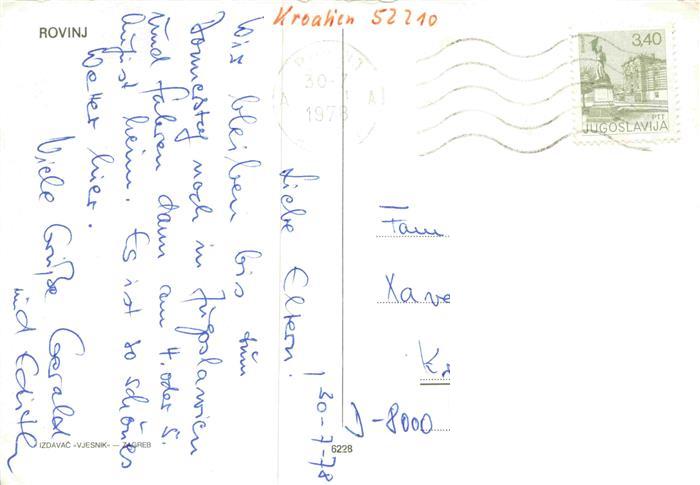 Kroatien 52210
ROVINJ
3,40
PTT
JUGOSLAVIJA
30-7
1978
A
A
30-7-78
Liebe Eltern!
Wir bleiben bis zum
Donnerstag noch in Jugoslawien
und fahren dann am 4. oder 5.
August heim. Es ist so schönes
Wetter hier.
Viele Grüße Gerald
und
Fam
Xave
D-8000
IZDAVAČ «VJESNIK» — ZAGREB
6228